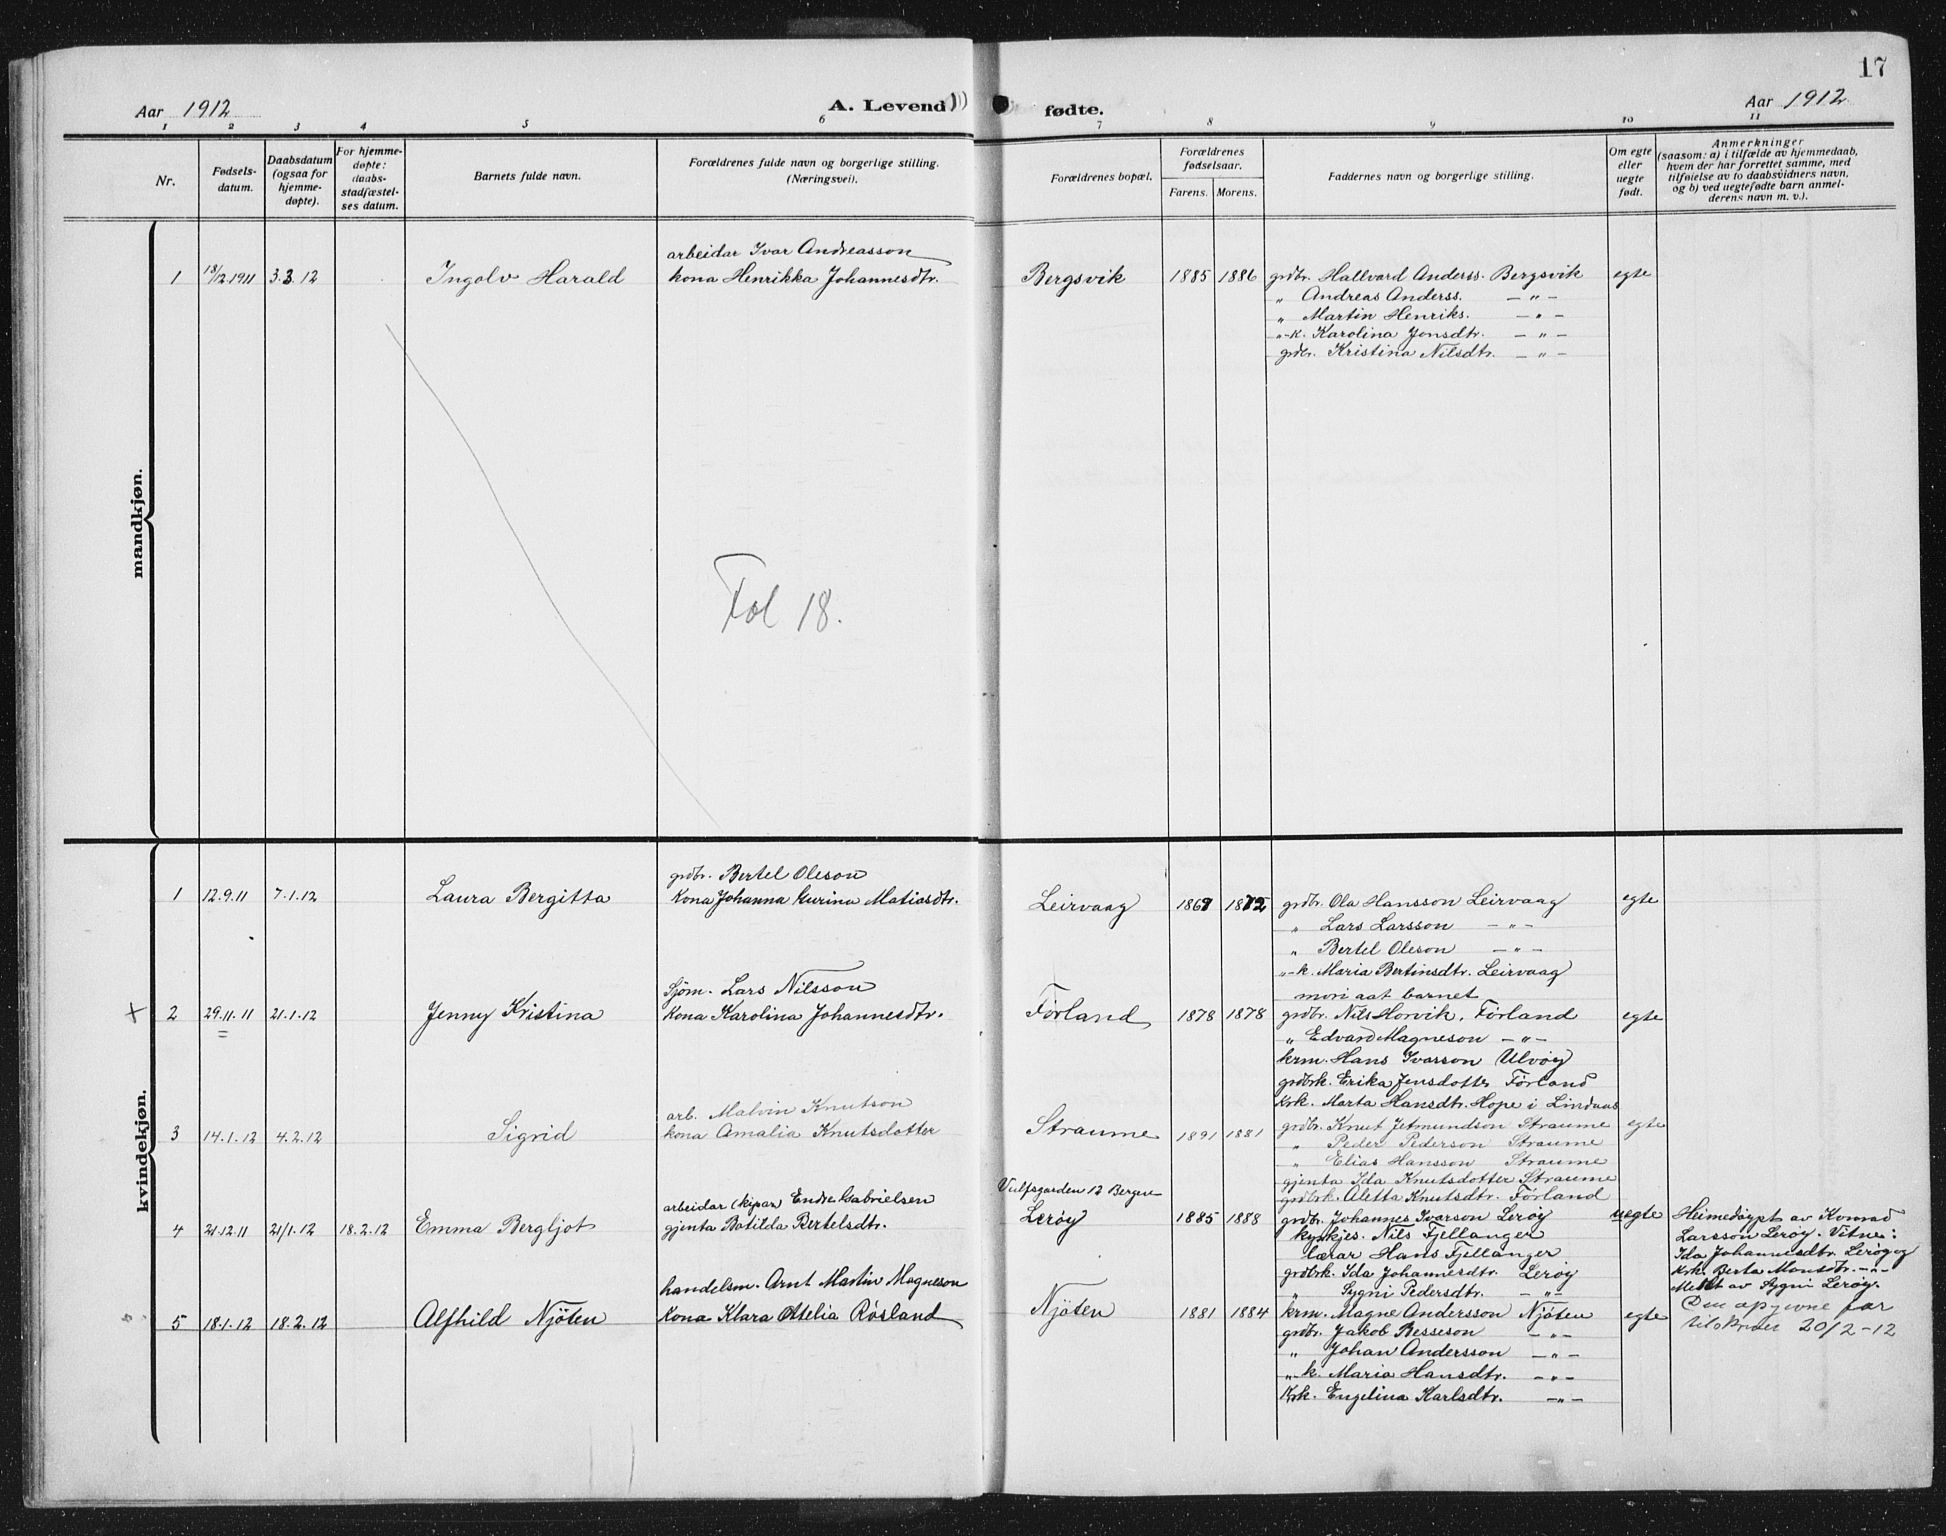 17
Aar 1912
A. Levende fødte.
Aar 1912
1 2 3 4 5 6 7 8 9 10 11
Nr.
Fødsels-
datum.
Daabsdatum
(ogsaa for
hjemme-
døpte).
For hjemme-
døpte:
daabs-
stadfæstel-
ses datum.
Barnets fulde navn.
Forældrenes fulde navn og borgerlige stilling.
(Næringsvei).
Forældrenes bopæl.
Forældrenes
fødselsaar.
Farens. Morens.
Faddernes navn og borgerlige stilling.
Om egte
eller
uegte
født.
Anmerkninger
(saasom: a) i tilfælde av hjemmedaab,
hvem der har forrettet samme, med
tilføielse av to daabsvidners navn,
og b) ved uegtefødte barn anmel-
derens navn m. v.).
mandkjøn.
arbeidar Ivar Andreasson
1 18/12 1911 3.3.12 Ingolv Harald kona Henrikka Johannesdtr. Bergsvik 1885 1886 grdbr. Hallvard Anderss. Bergsvik egte
" Andreas Anderss. – " –
" Martin Henriks. – " –
"-k. Karolina Jonsdtr. – " –
grdbr. Kristina Nilsdtr. – " –
Fol 18.
kvindekjøn.
grdbr. Bertel Oleson
1 12.9.11 7.1.12 Laura Bergitta kona Johanna Kurina Matiasdtr. Leirvaag 1867 1872 grdbr. Ola Hansson Leirvaag egte
" Lars Larsson – " –
" Bertel Oleson – " –
"-k. Maria Bertinsdtr. Leirvaag
mori aat barnet
Sjøm. Lars Nilsson
2 29.11.11 21.1.12 Jenny Kristina kona Karolina Johannesdtr. Førland 1878 1878 grdbr. Nils Horvik, Førland egte
" Edvard Magneson – " –
krm. Hans Ivarson Ulvøy
grdbrk. Erika Jensdotter Førland
krk. Marta Hansdtr. Hope i Lindaas
arb. Malvin Knutson
3 14.1.12 4.2.12 Sigrid kona Amalia Knutsdotter Straume 1891 1881 grdbr. Knut Jetmundson Straume egte
" Peder Pederson Straume
" Elias Hansson Straume
gjenta Ida Knutsdotter Straume
grdbrk. Aletta Knutsdtr. Førland
arbeidar (kipar) Endre Gabrielsen Vulfsgarden 12 Bergen
4 21.12.11 21/1.12 18.2.12 Emma Bergljot gjenta Batilda Bertelsdtr. Lerøy 1885 1888 grdbr. Johannes Ivarson Lerøy uegte Heimedøypt av Konrad
kyrkjes. Nils Fjellanger Larsson Lerøy. Vitne:
lærar Hans Fjellanger Ida Johannesdtr. Lerøy og
grdbrk. Ida Johannesdtr. Lerøy krk. Berta Monsdtr. – " –
" Sygni Pedersdtr. – " – Meldt av Sygni Lerøy.
handelsm. Arnt Martin Magneson
5 18.1.12 18.2.12 Alfhild Njøten kona Klara Otelia Røsland Njøten 1881 1884 krm. Magne Andersson Njøten egte Den opgivne far
grdbr. Jakob Besseson – " – tilskrivet 20/2-12
" Johan Andersson – " –
"-k. Maria Hansdtr. – " –
krk. Engelina Karlsdtr. – " –